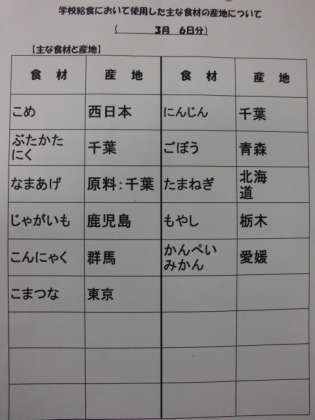 学校給食において使用した主な食材の産地について
(3月 6日分)
【主な食材と産地】
食 材 産 地 食 材 産 地
こめ 西日本 にんじん 千葉
ぶたかた
にく 千葉 ごぼう 青森
なまあげ 原料:千葉 たまねぎ 北海
道
じゃがいも 鹿児島 もやし 栃木
こんにゃく 群馬 かんぺい
みかん 愛媛
こまつな 東京